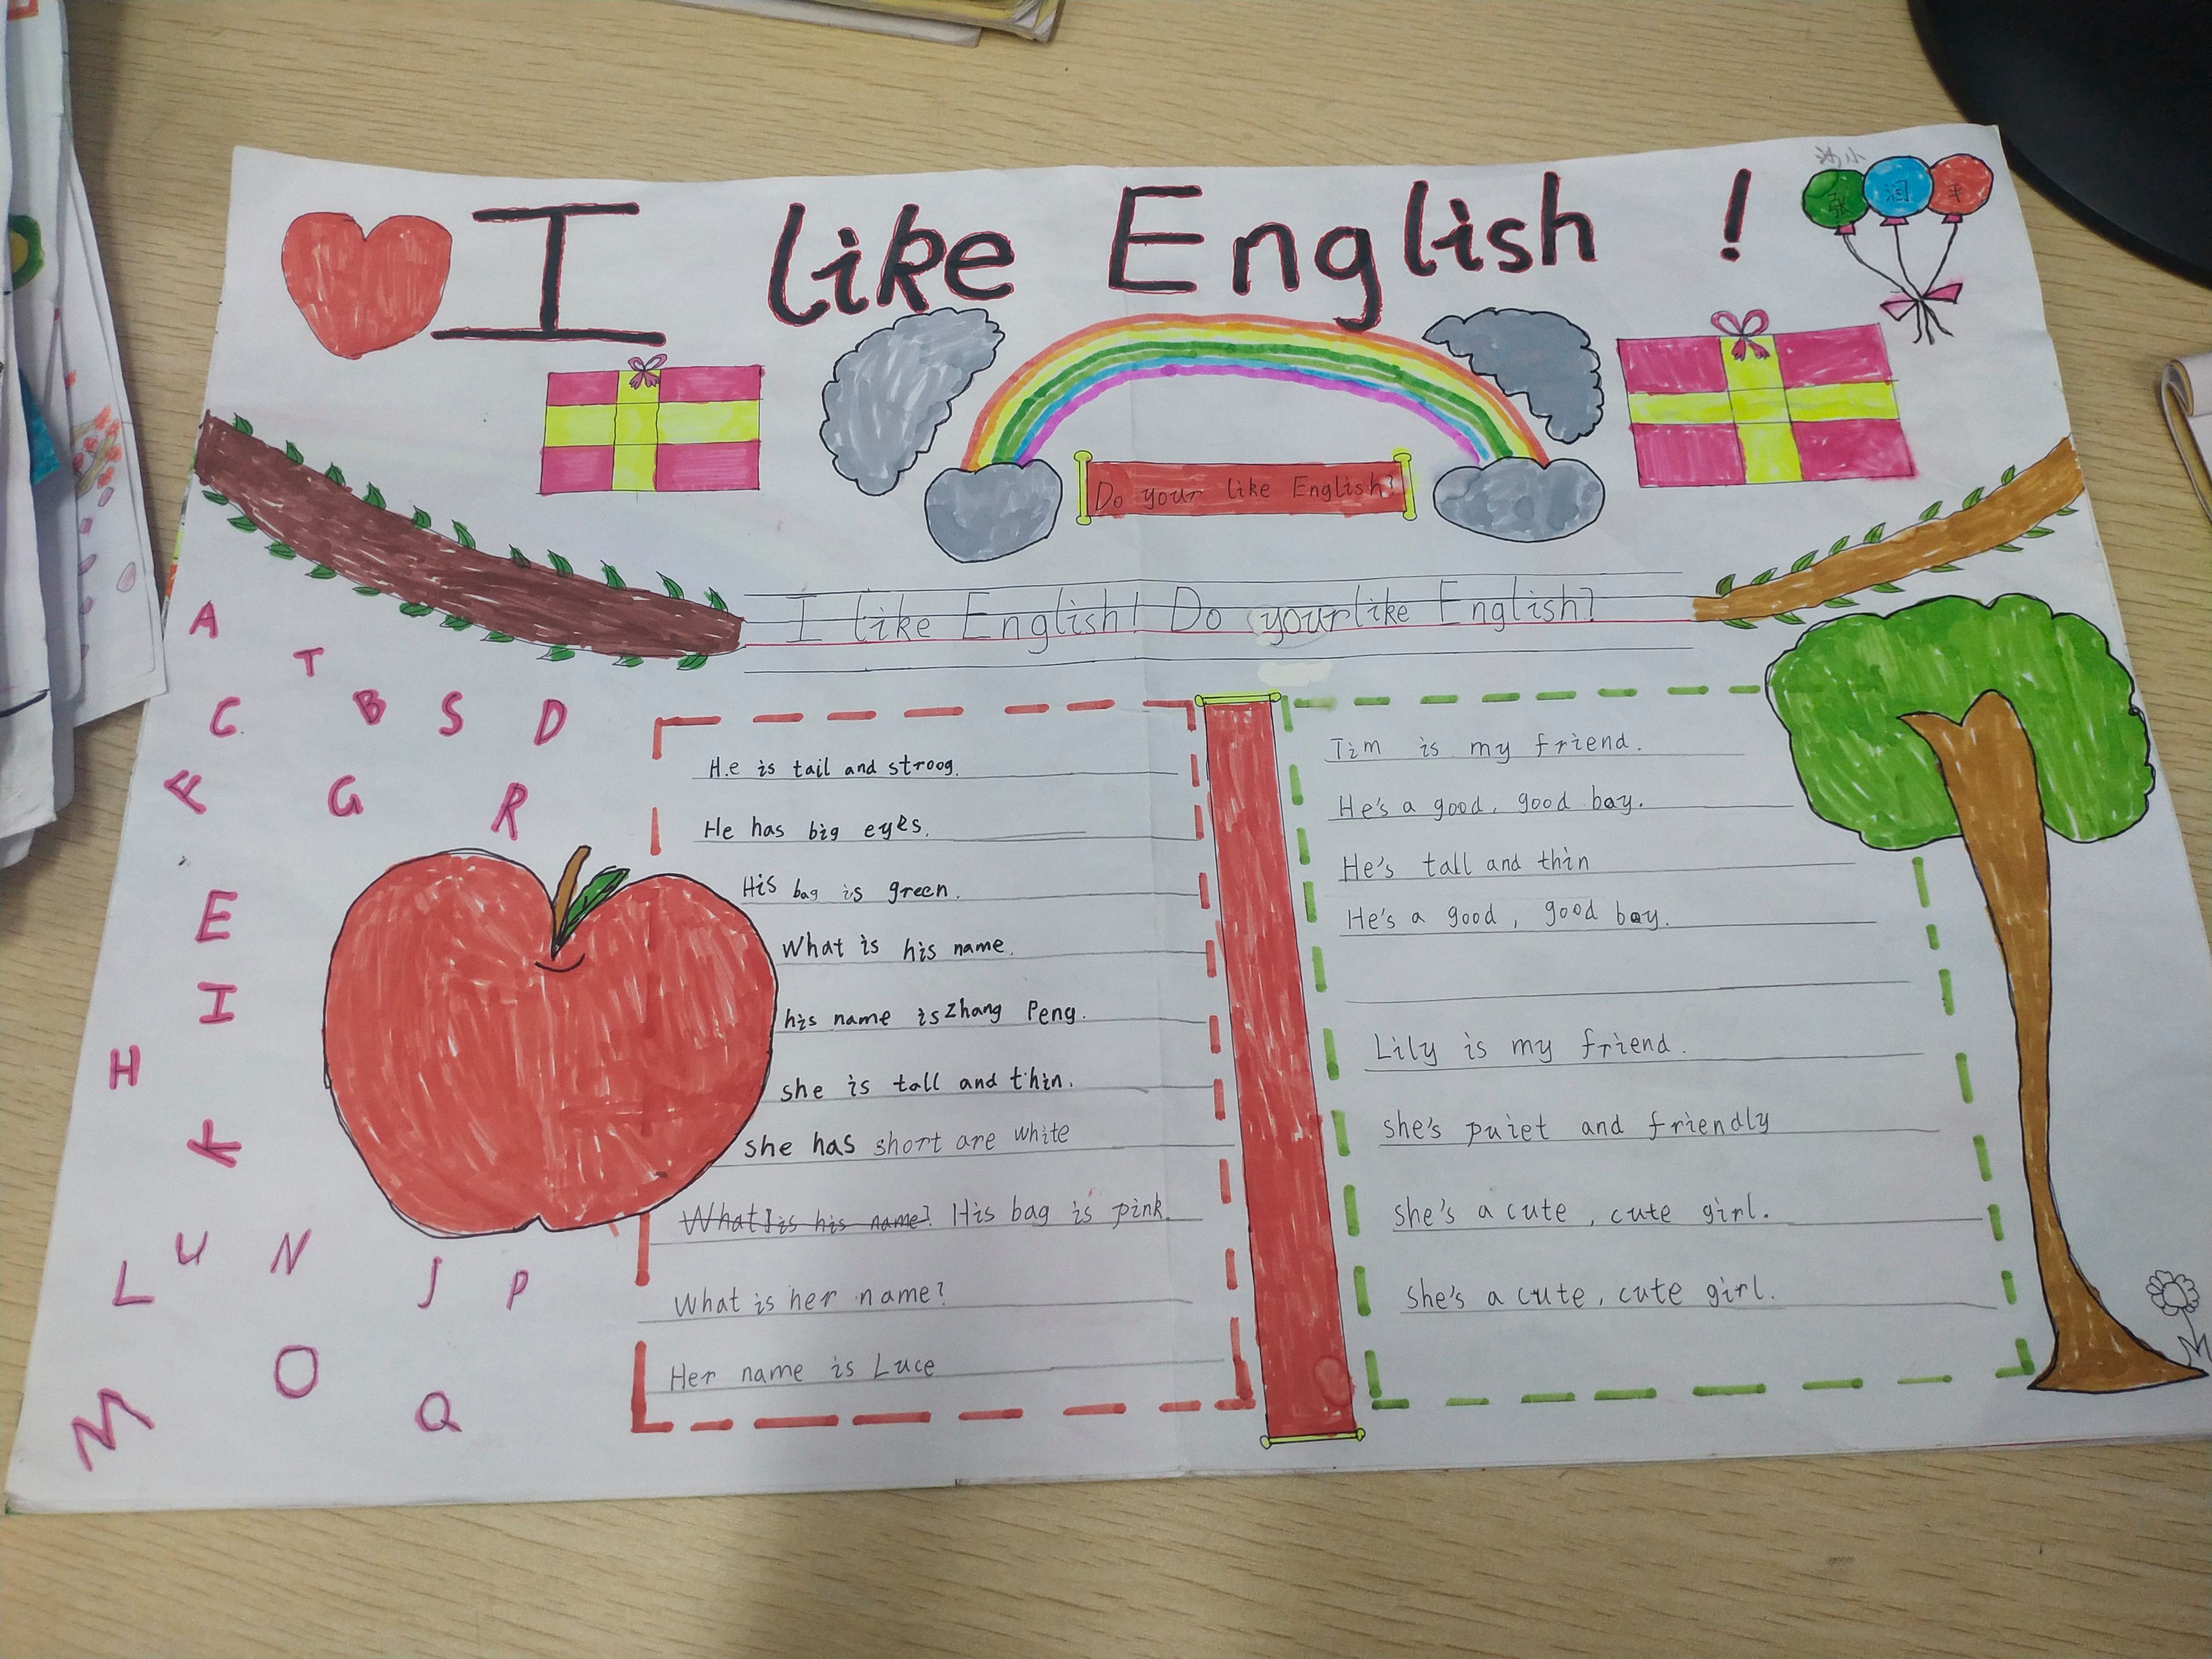 I like English !
沟小
张 润 平
Do your like English?
I like English! Do your like English?
A
T
C B S D
F G R
E
I
H
K
L U N J P
O
M Q
He is tail and stroog.
He has big eyes.
His bag is green.
What is his name.
his name is Zhang Peng.
she is tall and thin.
she has short are white
What is his name? His bag is pink.
What is her name?
Her name is Luce
Tim is my friend.
He's a good, good boy.
He's tall and thin
He's a good, good boy.
Lily is my friend.
she's puiet and friendly
she's a cute, cute girl.
she's a cute, cute girl.